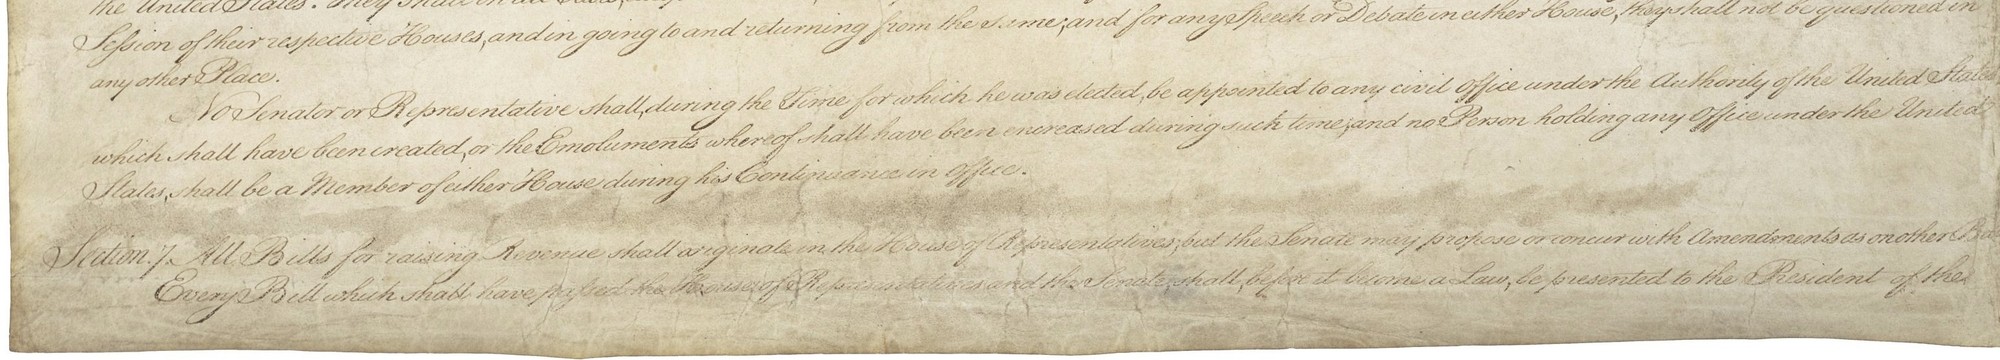 the United States. They shall in all
Session of their respective Houses, and in going to and returning from the same; and for any Speech or Debate in either House, they shall not be questioned in
any other Place.
No Senator or Representative shall, during the Time for which he was elected, be appointed to any civil Office under the Authority of the United States
which shall have been created, or the Emoluments whereof shall have been encreased during such time; and no Person holding any Office under the United
States, shall be a Member of either House during his Continuance in Office.
Section. 7. All Bills for raising Revenue shall originate in the House of Representatives; but the Senate may propose or concur with Amendments as on other
Every Bill which shall have passed the House of Representatives and the Senate, shall, before it become a Law, be presented to the President of the